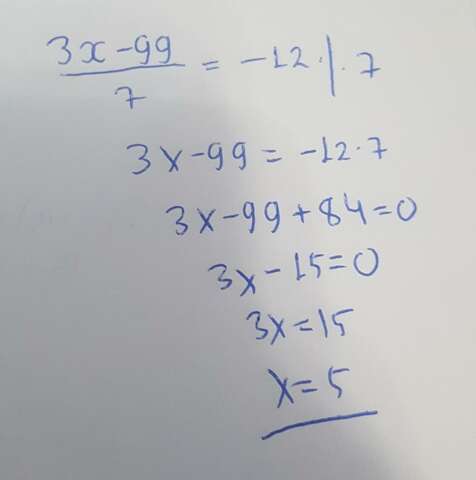 3x-99/7 = -12 · | · 7
3x-99 = -12·7
3x-99+84=0
3x-15=0
3x=15
x=5